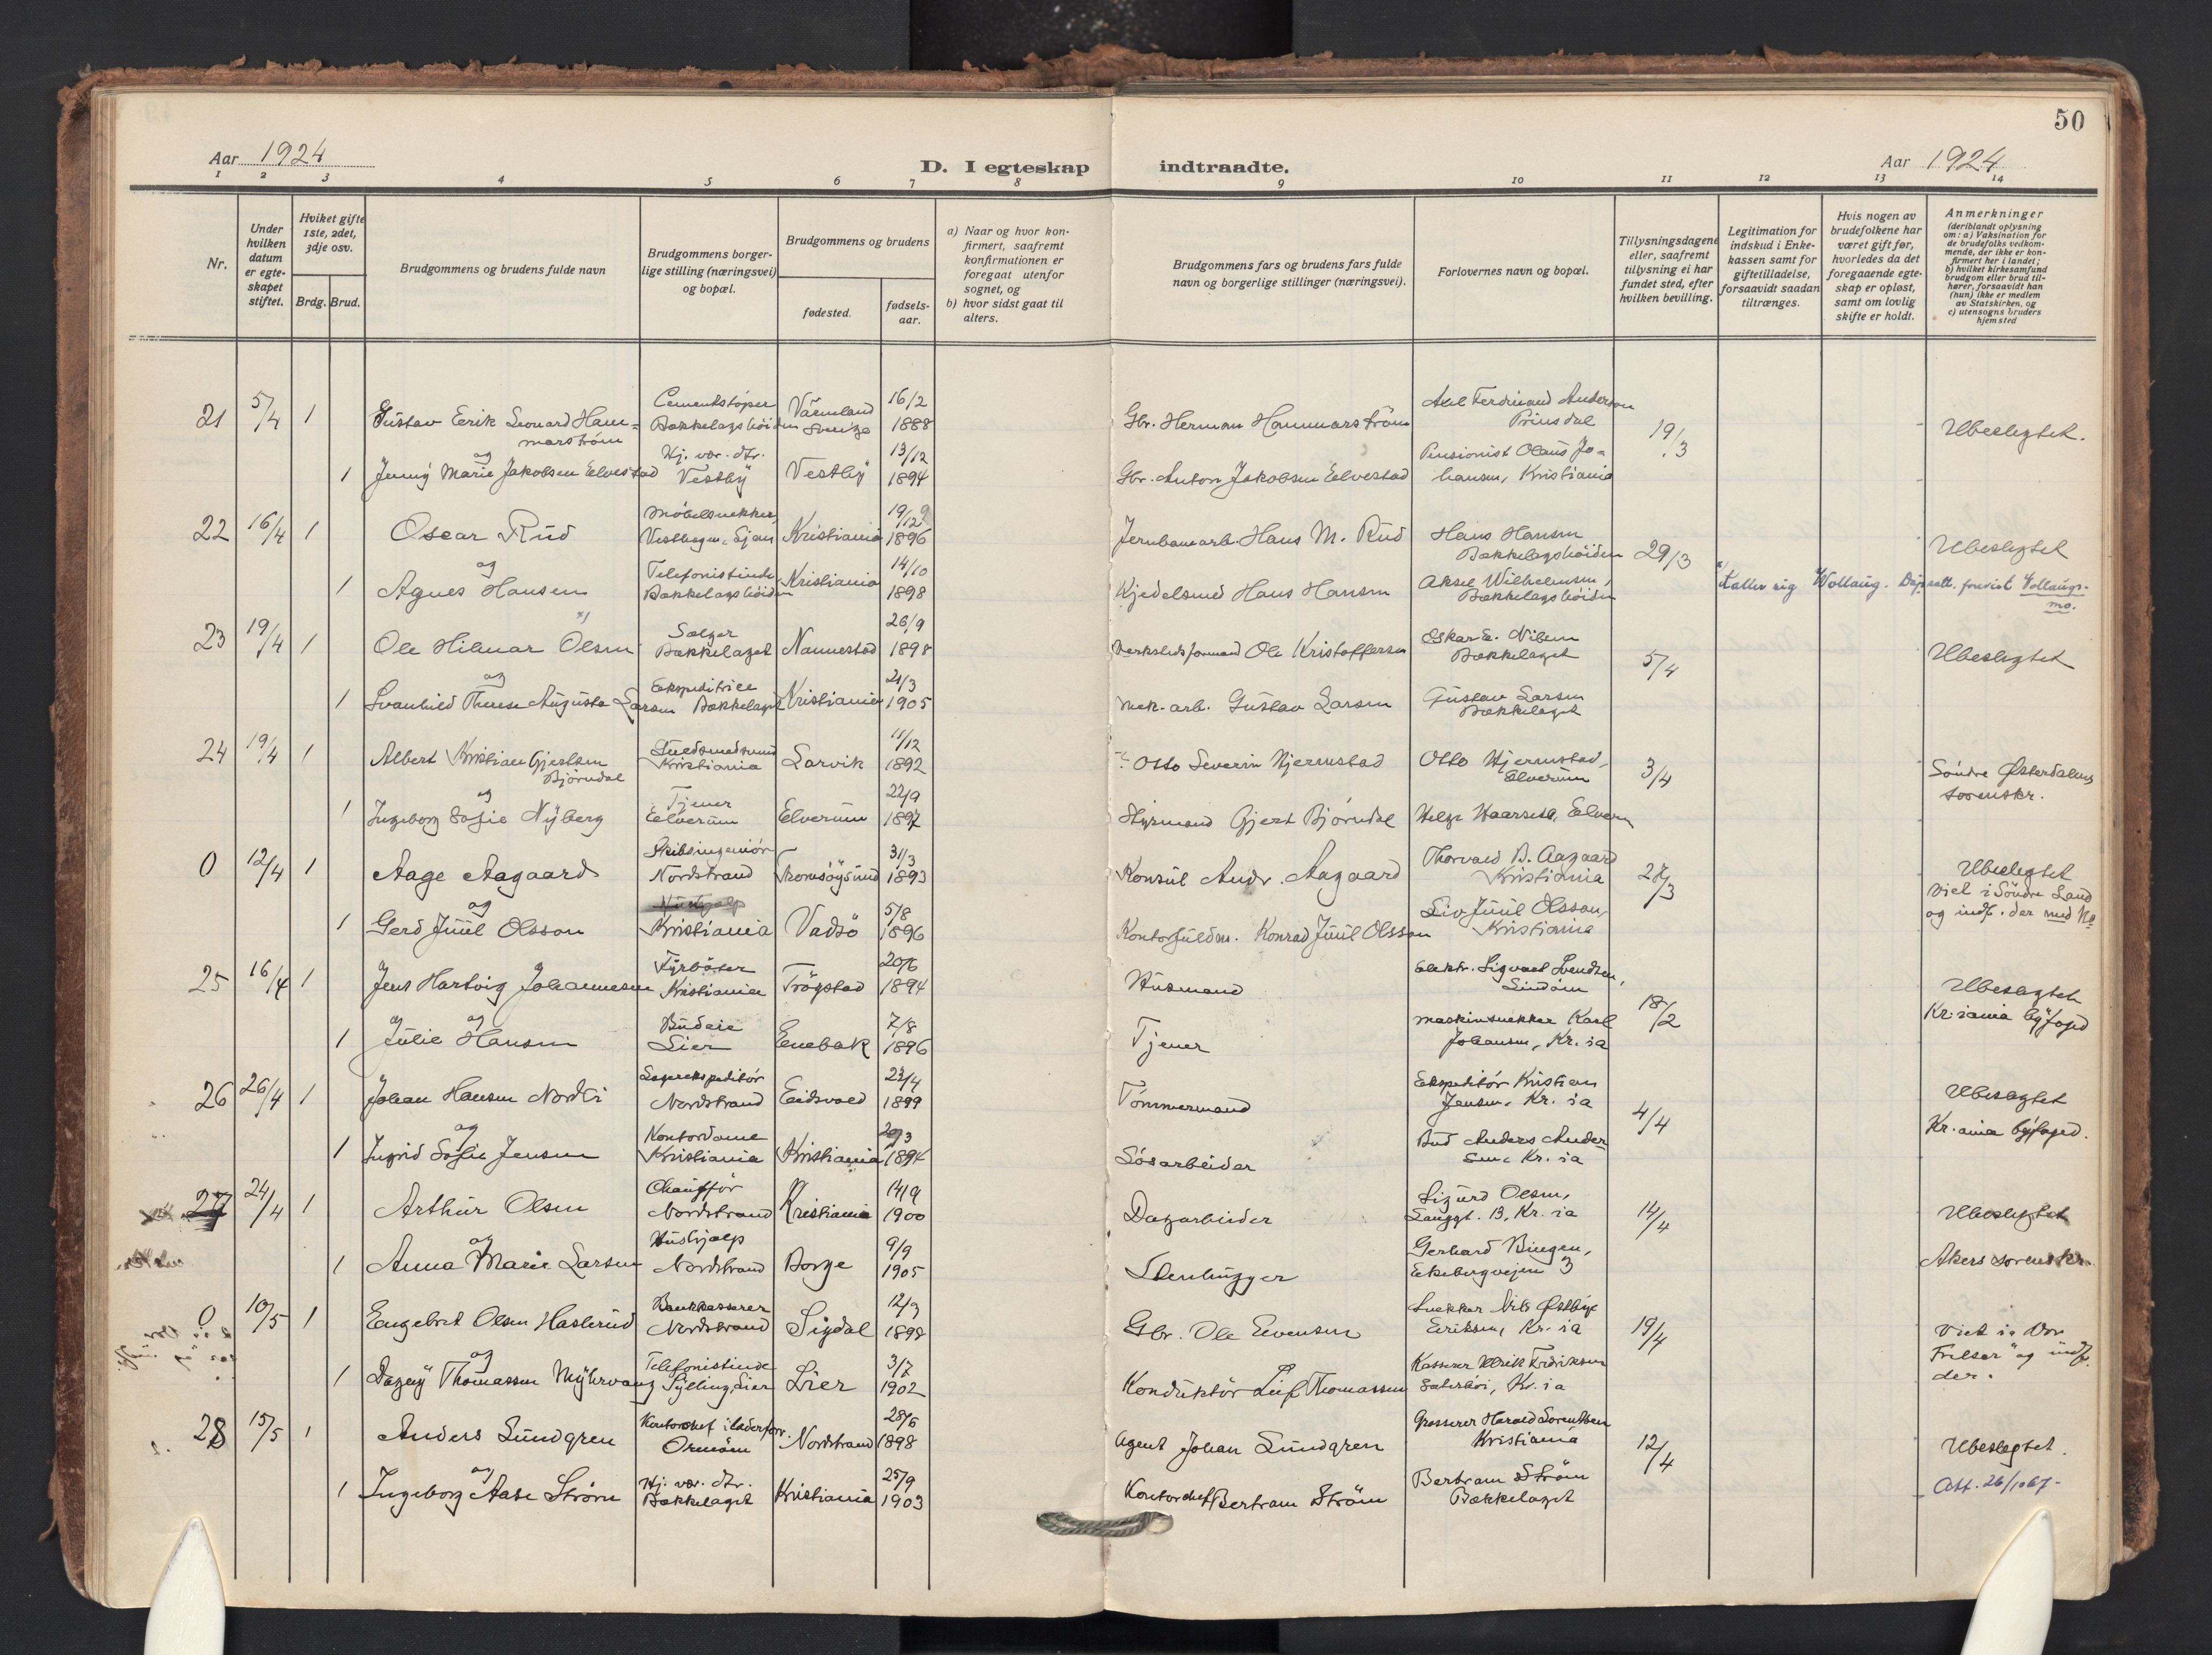 50
Aar 1924
D. I egteskap indtraadte.
Aar 1924
1 2 3 4 5 6 7 8 9 10 11 12 13 14
Nr.
Under hvilken datum er egte-skapet stiftet.
Hviket gifte 1ste, 2det, 3dje osv.
Brdg. Brud.
Brudgommens og brudens fulde navn
Brudgommens borger-lige stilling (næringsvei) og bopæl.
Brudgommens og brudens
fødested.
fødsels-aar.
a) Naar og hvor kon-firmert, saafremt konfirmationen er foregaat utenfor sognet, og
b) hvor sidst gaat til alters.
Brudgommens fars og brudens fars fulde navn og borgerlige stillinger (næringsvei).
Forlovernes navn og bopæl.
Tillysningsdagene eller, saafremt tillysning ei har fundet sted, efter hvilken bevilling.
Legitimation for indskud i Enke-kassen samt for giftetilladelse, forsaavidt saadan tiltrænges.
Hvis nogen av brudefolkene har været gift før, hvorledes da det foregaaende egte-skap er opløst, samt om lovlig skifte er holdt.
Anmerkninger (deriblandt oplysning om: a) Vaksination for de brudefolks vedkom-mende, der ikke er kon-firmert her i landet; b) hvilket kirkesamfund brudgom eller brud til-hører, forsaavidt han (hun) ikke er medlem av Statskirken, og c) utensogns bruders hjemsted
21 5/4 1 Gustav Erik Leonard Ham=marström Cementstøper Bækkelagshöiden Värmland Sverige 16/2 1888 Gbr. Herman Hammarström Axel Ferdinand Anderson Prinsdal 19/3 Ubeslegtet.
og
1 Jenny Marie Jakobsen Elvestad Hj. vær. dtr. Vestby Vestby 13/12 1894 Gbr. Anton Jakobsen Elvestad Pensionist Olaus Jo=hansen, Kristiania
22 16/4 1 Oscar Rud Möbelsnekker Kristiania 19/12 1896 Jernbanearb. Hans M. Rud Hans Hansen Bækkelagshöiden 29/3 Ubeslegtet
og
1 Agnes Hansen Telefonistinde Bækkelagshöiden Kristiania 14/10 1898 Kjedelsmed Hans Hansen Aksel Wilhelmsen, Bækkelagshöiden
x) Kaller sig Wollaug. Daps att. forevist Vollaugs-mo.
23 19/4 1 Ole Hilmar Olsen x) Sælger Bækkelaget Nannestad 26/9 1898 Verkstedsformand Ole Kristoffersen Oskar E. Nilsen Bækkelaget 5/4 Ubeslegtet
og
1 Svanhild Therese Augusta Larsen Ekspeditrice Bækkelaget Kristiania 21/3 1905 Mek. arb. Gustav Larsen Gustav Larsen Bækkelaget
24 19/4 1 Albert Kristian Gjertsen Björndal Guldsmedsvend Kristiania Larvik 11/12 1892 Otto Severin Hjernstad Otto Hjernstad, Elverum 3/4 Söndre Østerdalens sorenskr.
og
1 Ingeborg Sofie Nyberg Tjener Elverum Elverum 22/9 1897 Styrmand Gjert Björndal Helge Elverum
0 12/4 1 Aage Aagaard Skibsingeniör Nordstrand Tromsöysund 31/3 1893 Konsul Andr. Aagaard Thorvald B. Aagaard Kristiania 27/3 Ubeslegtet
viet i Söndre Land og indf. der med No
og
1 Gerd Juul Olsson Kristiania Vadsö 5/8 1896 Kontorfuldm. Konrad Juul Olsson Liv Juul Olsson, Kristiania
25 16/4 1 Jens Hartvig Johannesen Fyrböter Kristiania Trögstad 20/6 1894 Husmand Elektr. Sigvart Svendsen, 18/2 Ubeslegtet
Kr.iania byfoged
og
1 Julie Hansen Budeie Lier Enebak 7/8 1896 Tjener Maskinsnekker Karl Johansen, Kr. ia
26 26/4 1 Johan Hansen Nordli Lagerekspeditör Nordstrand Eidsvold 23/4 1899 Tömmermand Ekspeditör Kristian Jensen, Kr. ia 4/4 Ubeslegtet
Kr.ania byfoged.
og
1 Ingrid Sofie Jensen Kontordame Kristiania Kristiania 20/3 1894 Lösarbeider Bud Anders Ander=sen, Kr. ia
27 24/4 1 Arthur Olsen Chaufför Nordstrand Kristiania 14/9 1900 Dagarbeider Sigurd Olsen, Langgt. 13, Kr. ia 14/4 Ubeslegtet
og
1 Anna Marie Larsen Hushjælp Nordstrand Borge 9/9 1905 Stenhugger Gerhard Bingen, Ekebergvejen 3 Akers sorenskr.
0 10/5 1 Engebret Olsen Haslerud Bankkasserer Nordstrand Sigdal 12/3 1898 Gbr. Ole Evensen Snekker Nils Østbye Eriksen, Kr. ia 19/4 Viet i "Vor Frelser" og indf. der.
og
1 Dagny Thomassen Myhrvang Telefonistinde Sylling Lier Lier 3/7 1902 Konduktör Leif Thomassen Kasserer Ulrik Fredriksen Sæterhöi, Kr. ia
28 15/5 1 Anders Lundgren Kontorchef i Ormöen Nordstrand 28/6 1898 Agent Johan Lundgren Grosserer Harald Lorentsen Kristiania 12/4 Ubeslegtet.
og
1 Ingeborg Aase Ström Hj. vær. dtr. Bækkelaget Kristiania 25/9 1903 Kontorchef Bertram Ström Bertram Ström Bækkelaget
Att. 26/10 67-